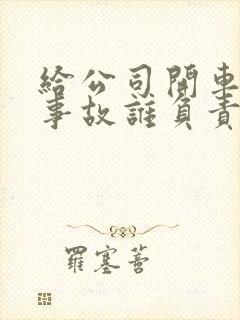 給公司開車
事故誰負責
羅塞菩